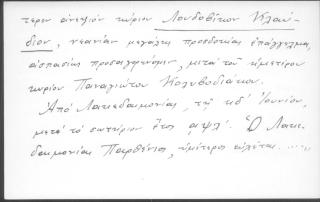 τερον ἀνεψιὸν κύριον Λουδοβίκον Κλαύ-
διον, νεανίαν μεγάλης προσδοκίας ἐπάγγελμα,
ἀσπασίως προσαγορεύομεν, μετὰ τοῦ ἡμετέρου
κυρίου Παναγιώτου Καλεβοδιάκου.
Ἀπὸ Λακεδαιμονίας, τῇ κδ' Ἰουνίου,
μετὰ τὸ σωτήριον ἔτος αψλ'. Ὁ Λακε-
δαιμονίας Παρθένιος, ὑμέτερος εὐχέτης.....»